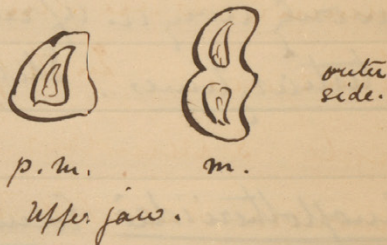 outer
side.
p. m. m.
Upper jaw.